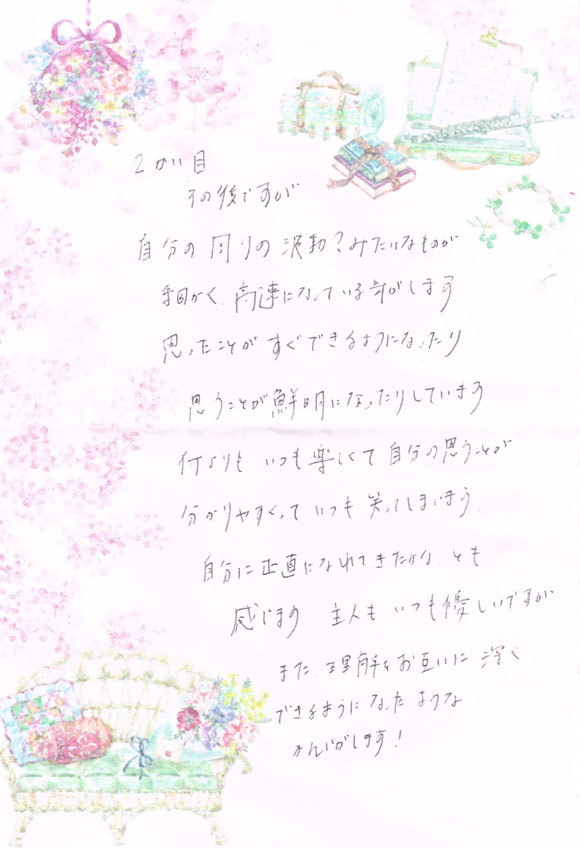 2かい目
その後ですが
自分の周りの波動?みたいなものが
細かく、高速になっている気がします
思ったことがすぐできるようになったり
思うことが鮮明になったりしています
何よりも いつも楽しくて自分の思うことが
分かりやすくって いつも笑ってしまいます
自分に正直になれてきたかな、とも
感じます 主人も いつも優しいですが
また、理解をお互いに深く
できるようになったような
かんじがします!